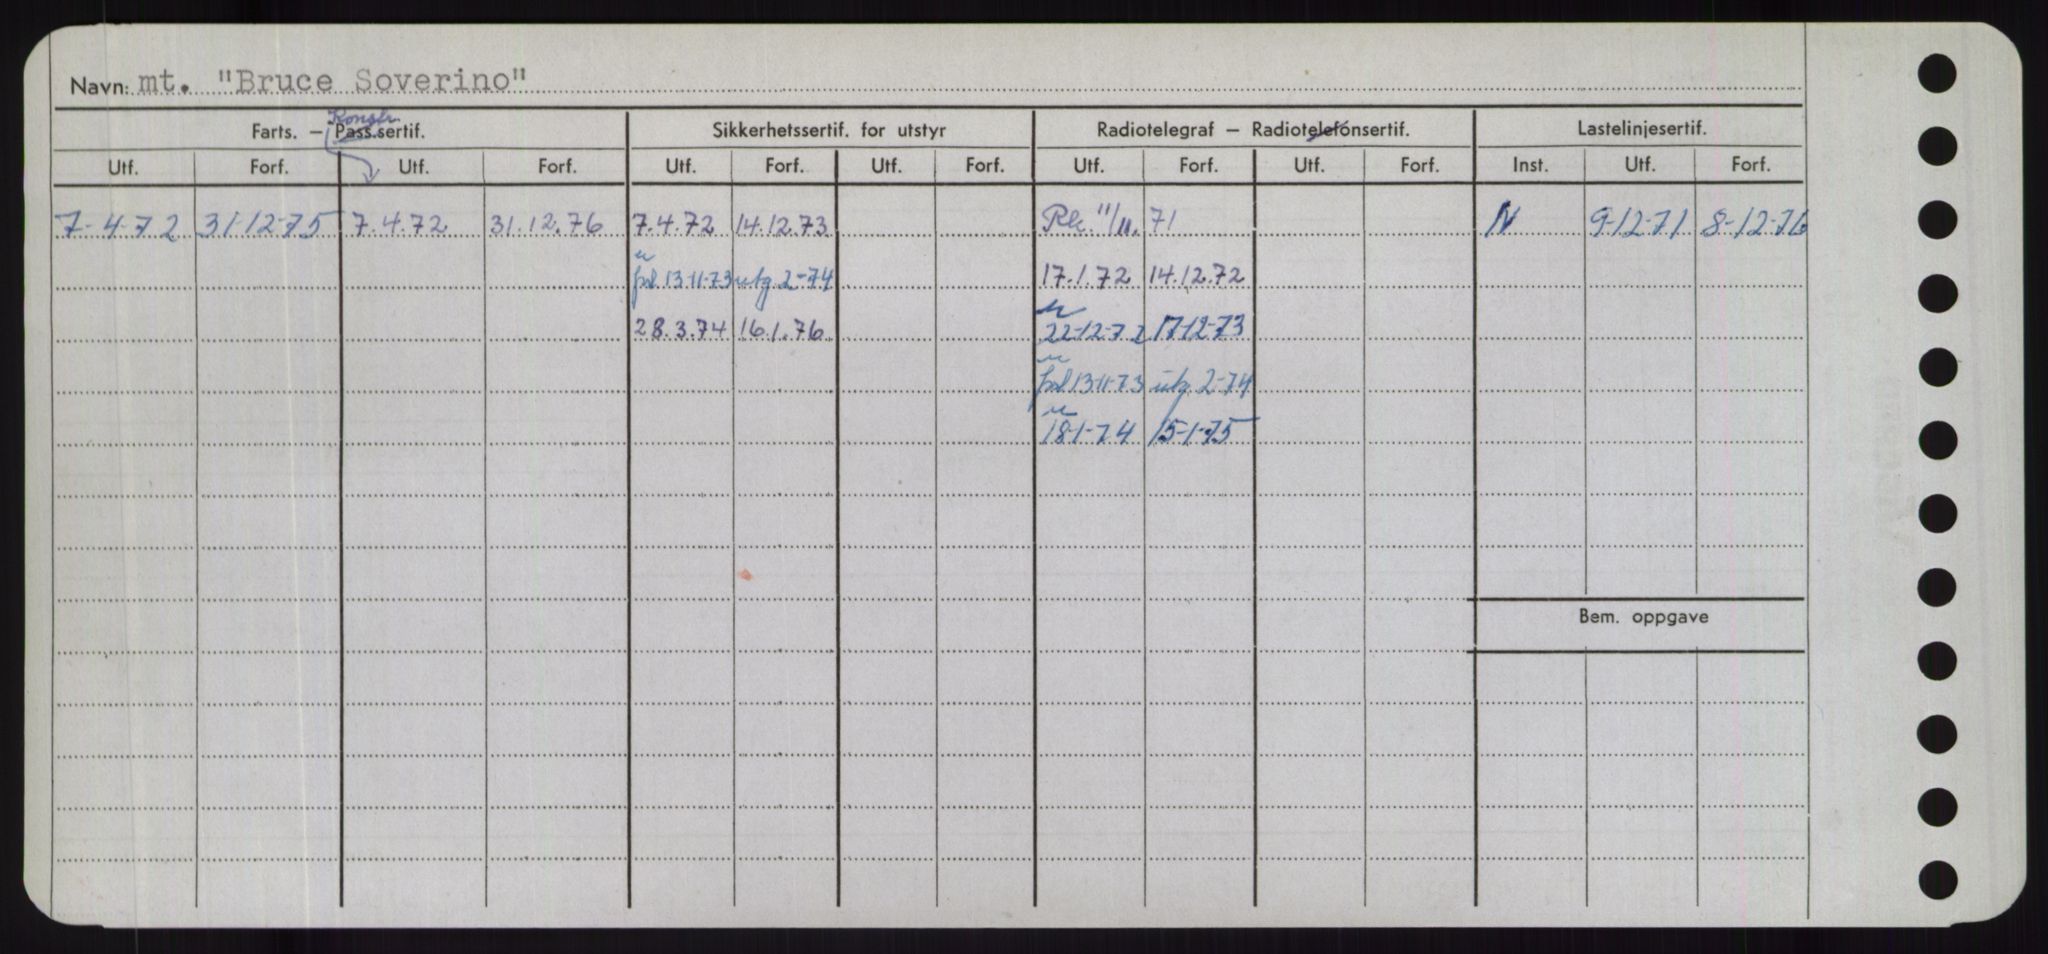 Navn: mt. "Bruce Soverino"
Konstr.
Farts. – Pass.sertif. Sikkerhetssertif. for utstyr Radiotelegraf – Radiotelefonsertif. Lastelinjesertif.
Utf. Forf. Utf. Forf. Utf. Forf. Utf. Forf. Utf. Forf. Utf. Forf. Inst. Utf. Forf.
7-4-72 31-12-75 7.4.72 31.12.76 7.4.72 14.12.73 11/11. 71 N 9-12-71 8-12-76
13-11-73 utg. 2-74 17.1.72 14.12.72
28.3.74 16.1.76 22-12-72 17-12-73
13-11-73 utg. 2-74
18-1-74 15-1-75
Bem. oppgave